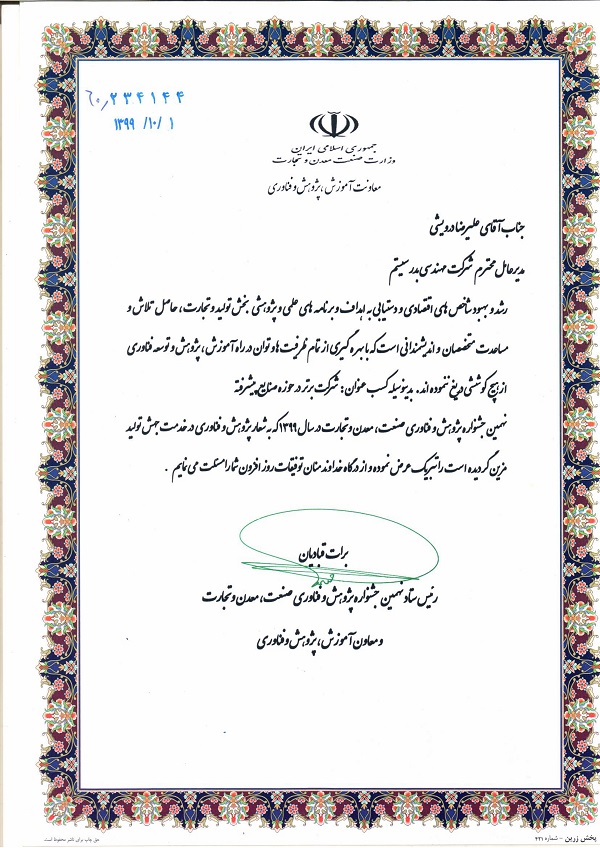 ۶۰٫۲۳۴۱۴۴
۱۳۹۹ /۱۰/ ۱
جمهوری اسلامی ایران
وزارت صنعت معدن و تجارت
معاونت آموزش، پژوهش و فناوری
جناب آقای علیرضا درویشی
مدیرعامل محترم شرکت مهندسی بدر سیستم
رشد و بهبود شاخص های اقتصادی و دستیابی به اهداف و برنامه های علمی و پژوهشی بخش تولید و تجارت، حاصل تلاش و
مساعدت متخصصان و اندیشمندانی است که با بهره گیری از تمام ظرفیت ها و توان در راه آموزش، پژوهش و توسعه فناوری
از هیچ کوششی دریغ ننموده اند. بدینوسیله کسب عنوان: شرکت برتر در حوزه صنایع پیشرفته
نهمین جشنواره پژوهش و فناوری صنعت، معدن و تجارت در سال ۱۳۹۹ که به شعار پژوهش و فناوری در خدمت جهش تولید
مزین گردیده است را تبریک عرض نموده و از درگاه خداوند منان توفیقات روز افزون شما را مسئلت می نمایم .
برات قبادیان
رئیس ستاد نهمین جشنواره پژوهش و فناوری صنعت، معدن و تجارت
و معاون آموزش، پژوهش و فناوری
پخش زرین - شماره ۲۳۱
حق چاپ برای ناشر محفوظ است